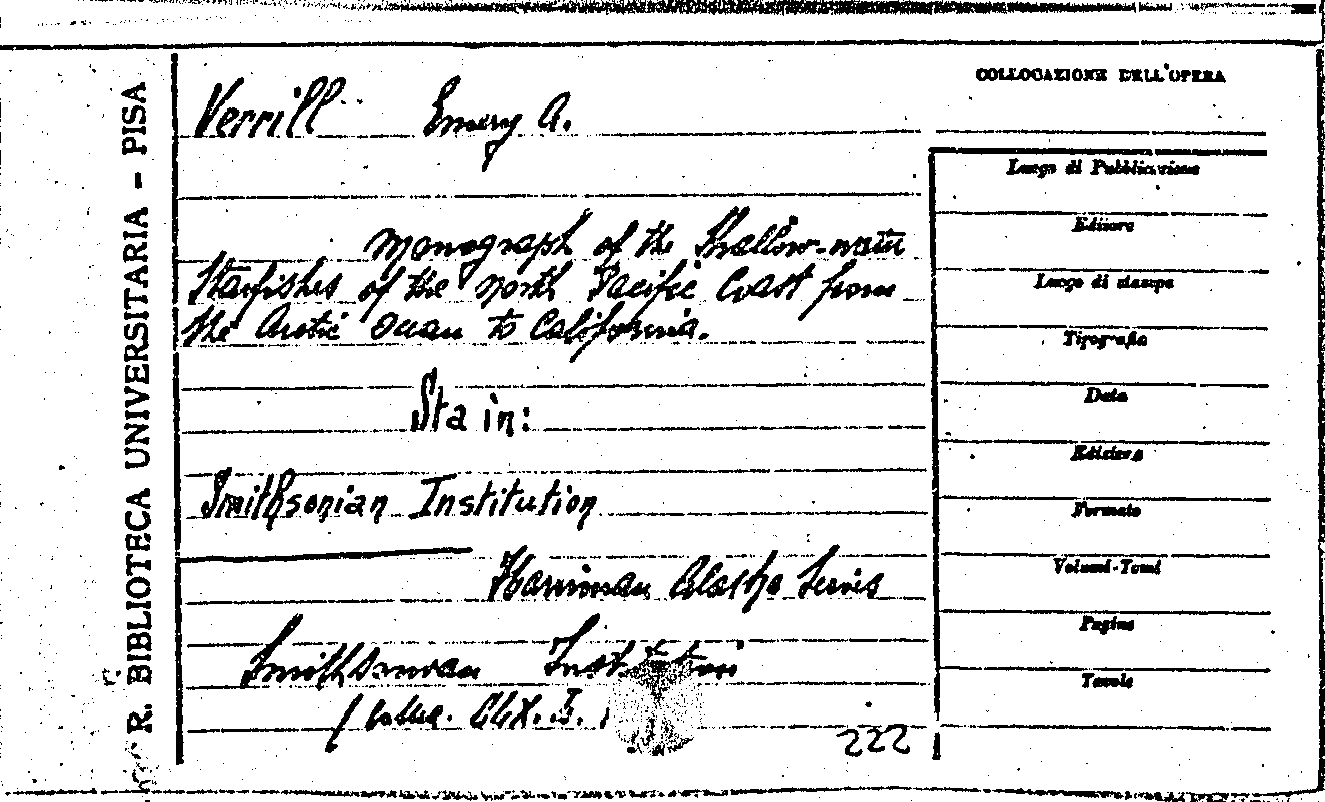 R. BIBLIOTECA UNIVERSITARIA - PISA
COLLOCAZIONE DELL'OPERA
Verrill Emery A.
Monograph of the Shallow-water
Starfishes of the North Pacific Coast from
the Arctic Ocean to California.
Sta in:
Smithsonian Institution
Harriman Alaska Series
Smithsonian Institution
222
Luogo di Pubblicazione
Editore
Luogo di stampa
Tipografia
Data
Edizione
Formato
Volumi-Tomi
Pagine
Tavole